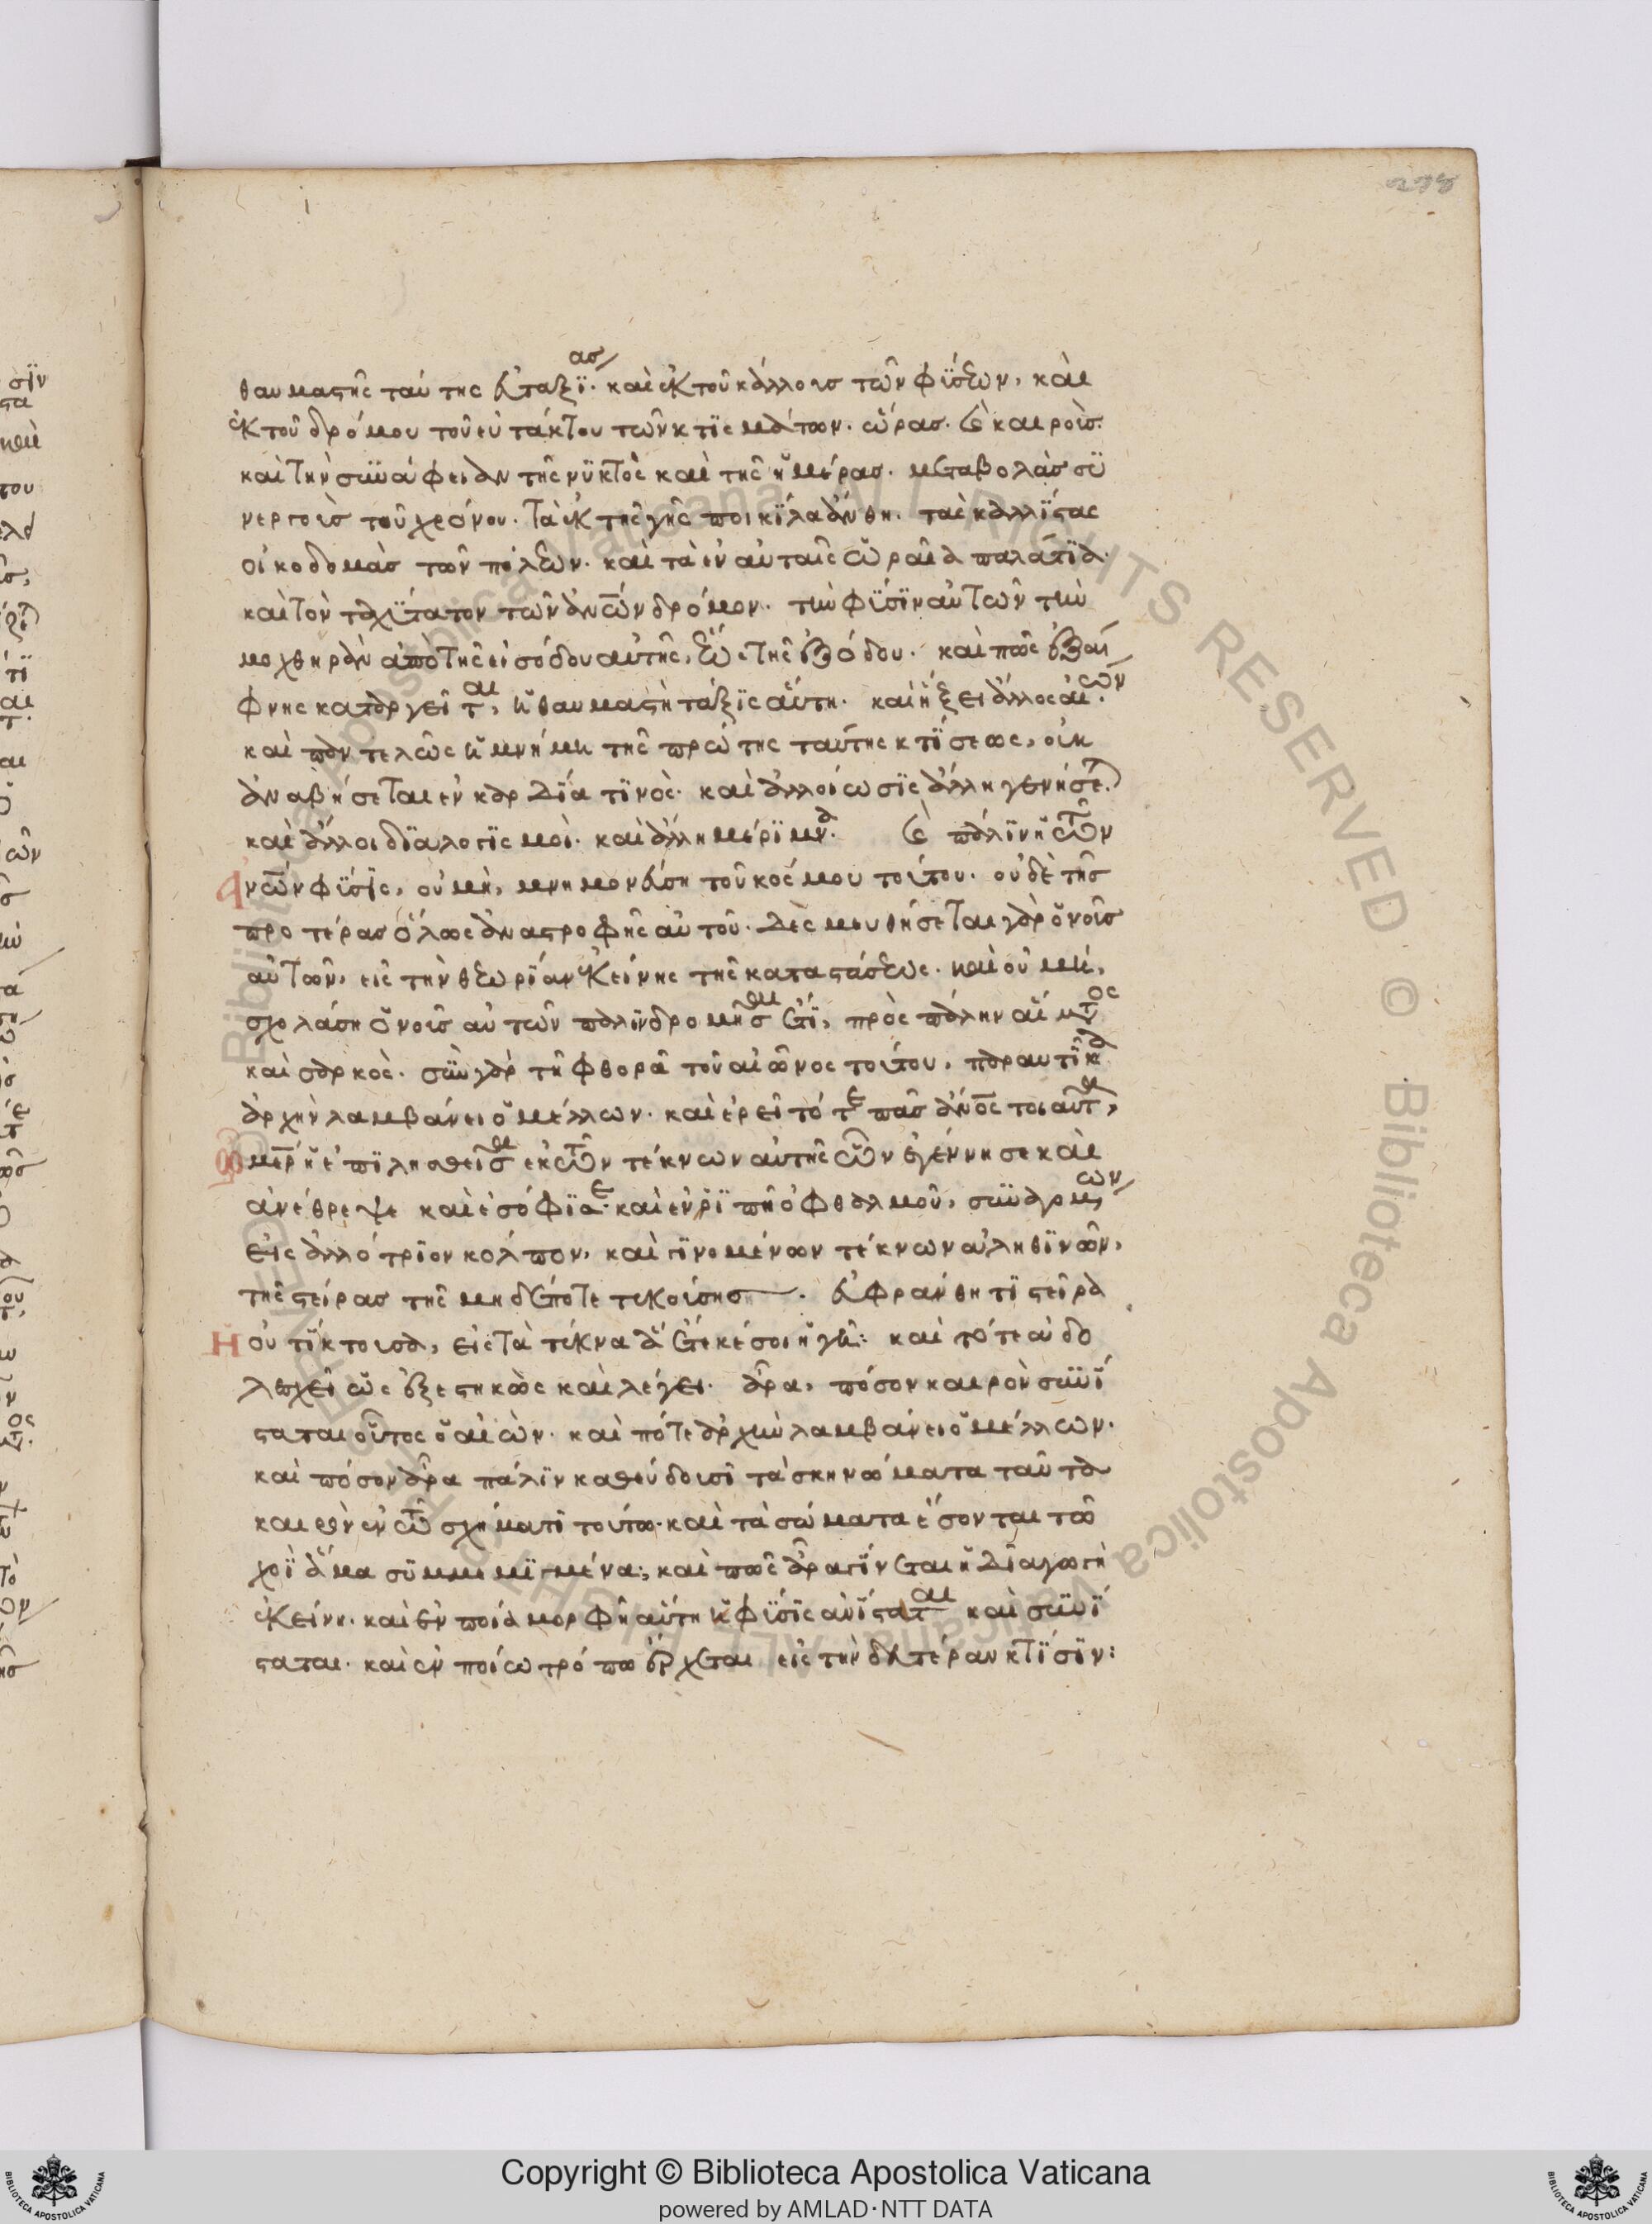 278
θαυμαστῆς ταύτης εὐταξίας· καὶ ἐκ τοῦ κάλλους τῶν φύσεων, καὶ
ἐκ τοῦ δρόμου τοῦ εὐτάκτου τῶν κτϊσμάτων. ὥρας. καὶ καιροὺς.
καὶ τὴν συνάφειαν τῆς νϋκτὸς καὶ τῆς ἡμέρας. μεταβολὰς συ
νεργοὺς τοῦ χρόνου. τὰ ἐκ τῆς γῆς ποικϊλα ἄνθη. τὰς καλλίστας
οἰκοδομὰς τῶν πόλεων. καὶ τὰ ἐν αὐταῖς ὡραῖα παλάτϊα.
καὶ τὸν ταχύτατον τῶν ἀνων δρόμον. τὴν φύσϊν αὐτῶν τὴν
μοχθηρὰν ἀπὸ τῆς εἰσόδου αὐτῆς, ἕως τῆς ἐξόδου. καὶ πῶς ἐξαί
φνης καταργεῖται, ἡ θαυμαστὴ τάξϊς αὕτη. καὶ ἥξει ἄλλος αἰών.
καὶ παντελῶς ἡ μνήμη τῆς πρώτης ταύτης κτΐσεως, οὐκ
ἀναβήσεται ἐν καρδΐα τϊνὸς· καὶ ἀλλοίωσϊς ἄλλη γενήσεται
καὶ ἄλλοι δϊαλογϊσμοὶ. καὶ ἄλλη μέρϊμνα. καὶ πάλϊν ἡ τῶν
ἀνων φύσϊς, οὐ μὴ, μνημονεύση τοῦ κόσμου τούτου. οὐδὲ τῆς
προτέρας ὅλως ἀναστροφῆς αὐτοῦ. δεσμευθήσεται γὰρ ὁ νοῦς
αὐτῶν, εἰς τὴν θεωρΐαν ἐκείνης τῆς καταστάσεως. καὶ οὐ μὴ,
σχολάση ὁ νοῦς αὐτῶν παλϊνδρομῆσαι ἔτϊ, πρὸς πάλην αἵματος
καὶ σαρκὸς. σὺν γὰρ τῆ φθορᾶ τοῦ αἰῶνος τούτου, παραυτΐκα
ἀρχὴν λαμβάνει ὁ μέλλων. καὶ ἐρεῖ τότε πᾶς ἄνος τοιαῦτα,
ὦ μηρ ἡ ἐπϊλησθεῖσα ἐκ τῶν τέκνων αὐτῆς ὧν ἐγέννησε καὶ
ἀνέθρεψε καὶ ἐσόφϊσε. καὶ ἐν ῥϊπῆ ὀφθαλμοῦ, συναγομένων
εἰς ἀλλότρϊον κόλπον, καὶ γϊνομένων τέκνων ἀληθϊνῶν,
τῆς στείρας τῆς μηδέποτε τεκούσης. εὐφράνθητϊ στεῖρα
ἡ οὐ τΐκτουσα, εἰς τὰ τέκνα ἃ ἔτεκέ σοι ἡ γῆ: καὶ τότε ἀδο
λεσχεῖ ὡς ἐξεστηκὼς καὶ λέγει. ἆρα, πόσον καιρὸν συνΐ
σταται οὗτος ὁ αἰών. καὶ πότε ἀρχὴν λαμβάνει ὁ μέλλων.
καὶ πόσον ἆρα πάλϊν καθεύδουσϊ τὰ σκηνώματα ταῦτα
καιρὸν ἐν τῶ σχήματϊ τούτω. καὶ τὰ σώματα ἔσονται τῶ
χοῒ ἅμα συμμεμϊγμένα; καὶ πῶς ἆρα γΐνεται ἡ δϊαγωγὴ
ἐκείνη. καὶ ἐν ποία μορφῆ αὕτη ἡ φύσϊς ἀνΐσταται καὶ συνΐ
σταται. καὶ ἐν ποίω τρόπω ἔρχεται εἰς τὴν δευτέραν κτΐσϊν:
Copyright © Biblioteca Apostolica Vaticana
powered by AMLAD·NTT DATA